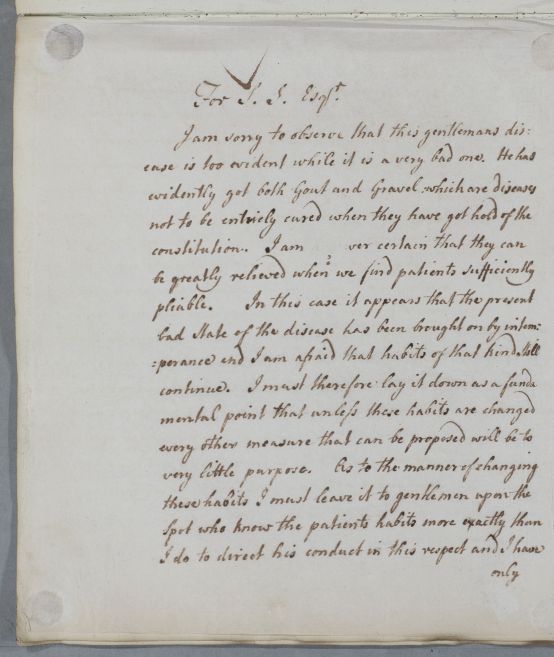 For S. S. Esqr.
I am sorry to observe that this gentlemans dis:
ease is too evident while it is a very bad one. He has
evidently got both Gout and Gravel which are diseases
not to be entirely cured when they have got hold of the
constitution. I am ver certain that they can
be greatly relieved when we find patients sufficiently
pliable. In this case it appears that the present
bad state of the disease has been brought on by intem:
:perance and I am afraid that habits of that kind still
continue. I must therefore lay it down as a funda
mental point that unless these habits are changed
every other measure that can be proposed will be to
very little purpose. As to the manner of changing
these habits I must leave it to gentlemen upon the
spot who know the patients habits more exactly than
I do to direct his conduct in this respect and I have
only